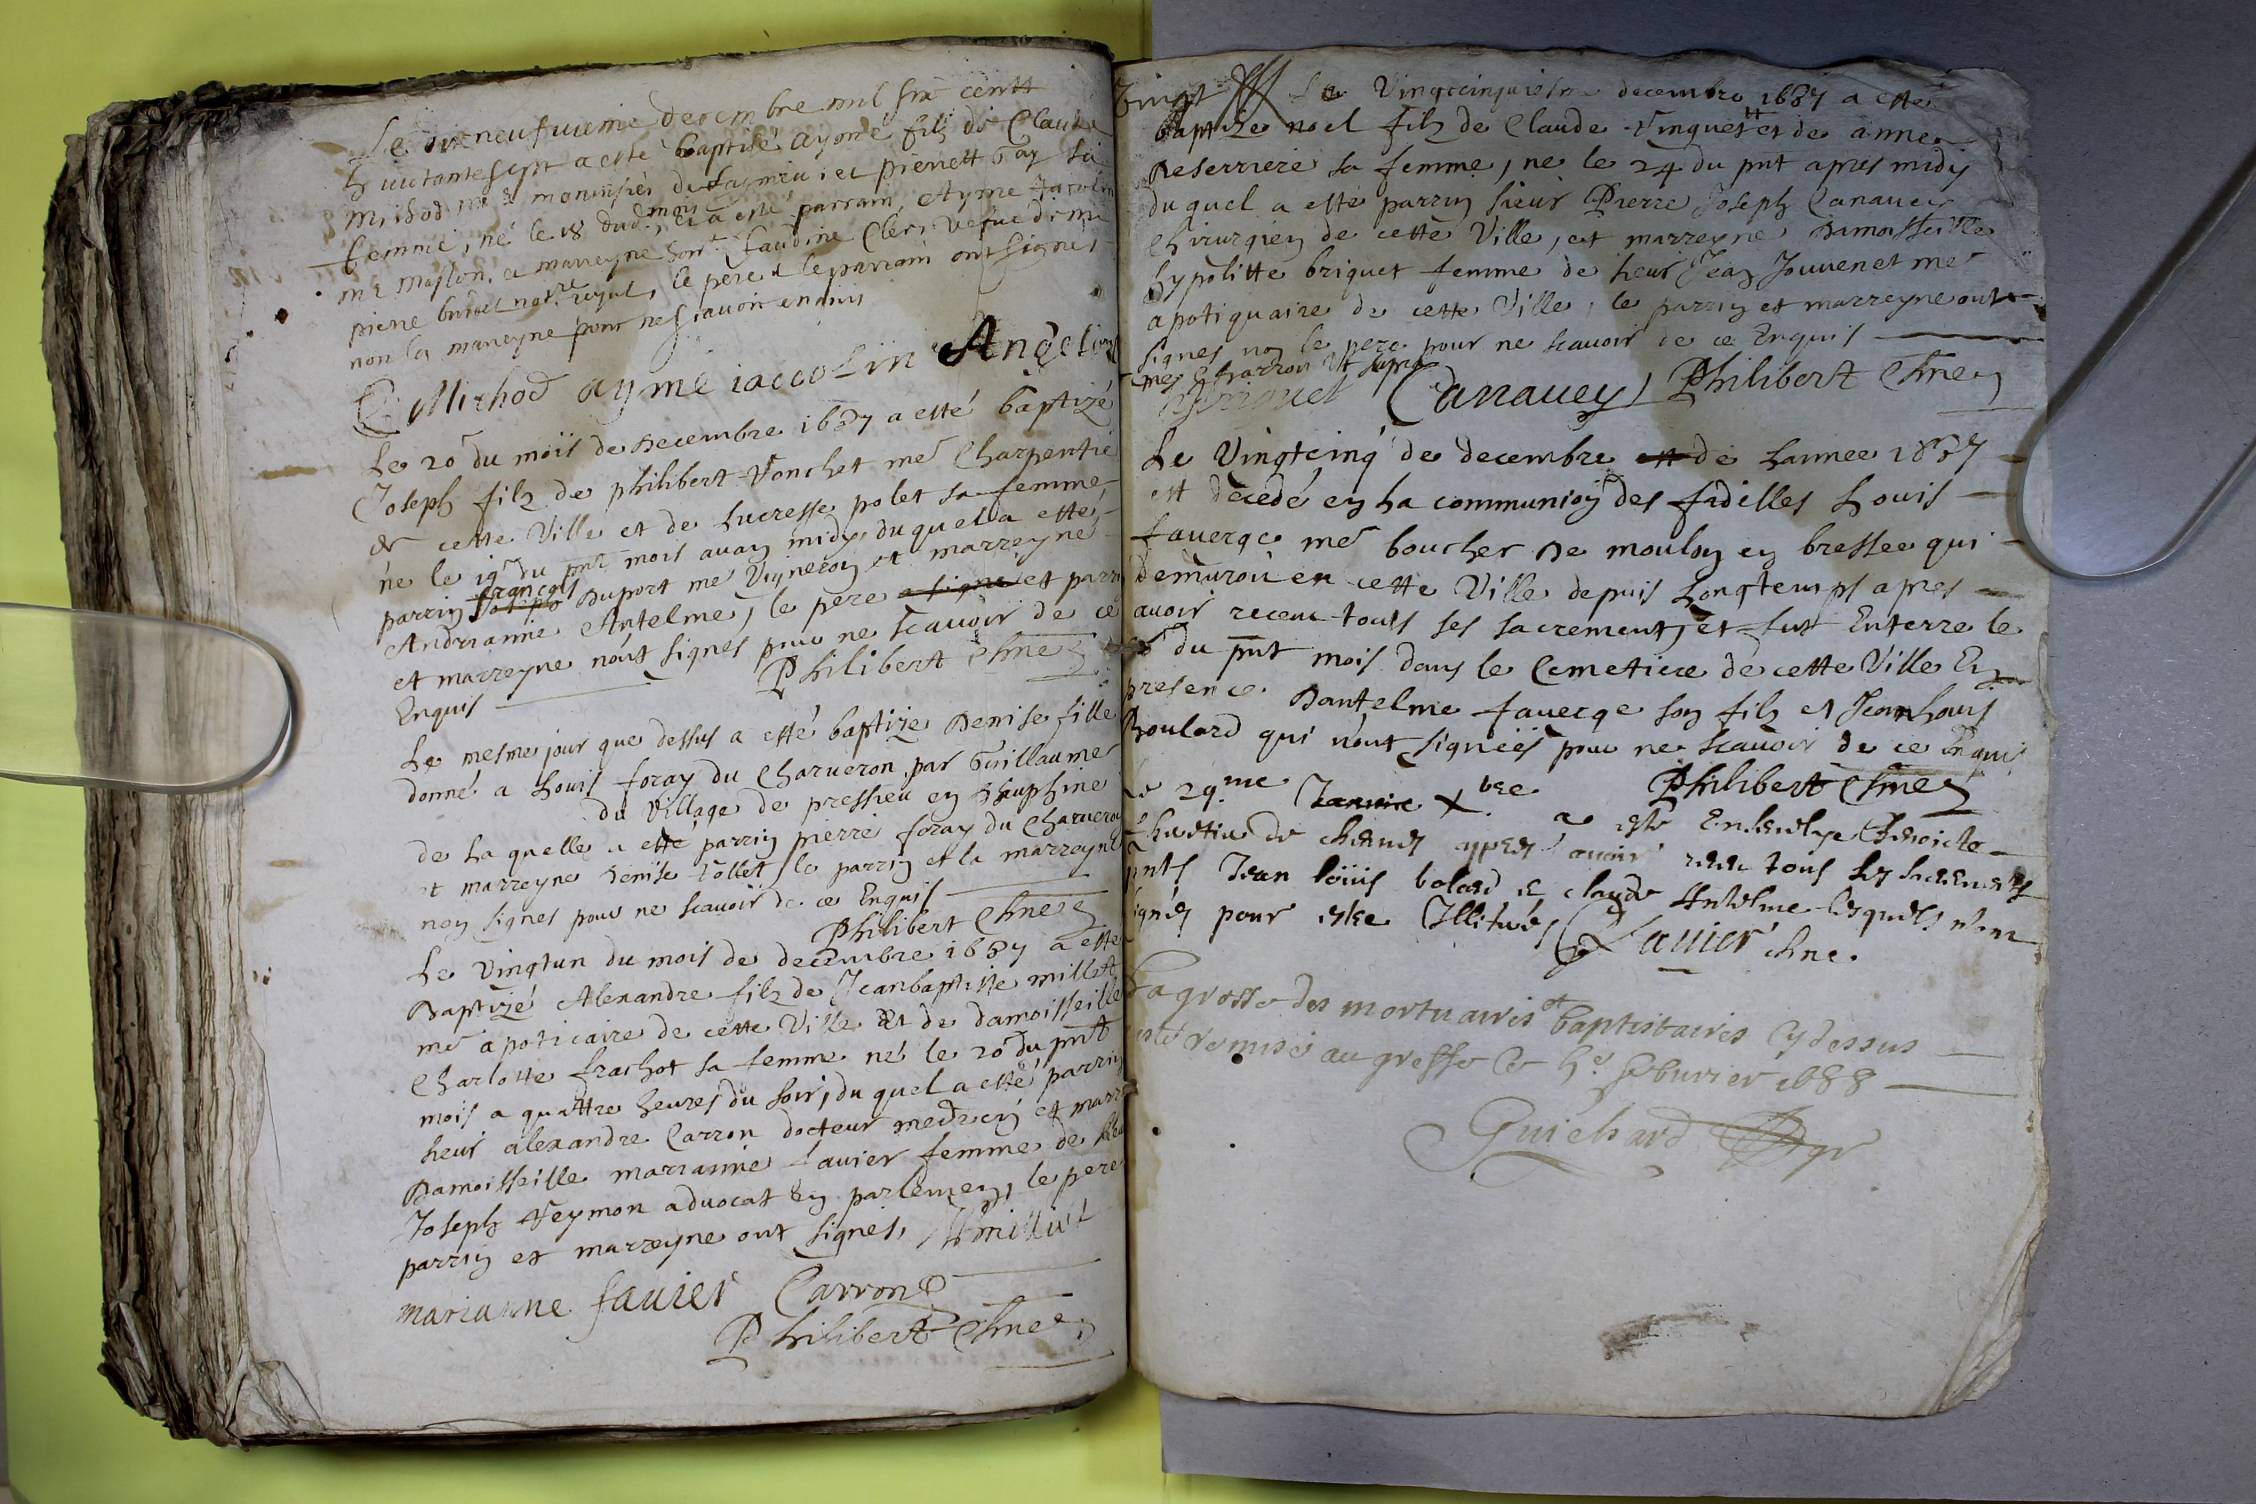 Le dixneufuieme decembre mil six centt
huictantesept a esté baptisé ayme filz de Claude
Michod me monusier de Lagnieu et pierrett Gay sa
femme, né le 18 dud. mois, et a esté parrain, Ayme Jacolin
me masson, a marreyne hon.e Claudine Clerc vefue de me
pierre burdet notre royal, le pere & le parrain ont signes
non la marreyne pour ne scauoir enquis
C Michod ayme iaccolin Angelin
Le 20 du mois de decembre 1687 a esté baptizé
Joseph filz de philibert Vonchet me Charpentie
de cette Ville et de Lucresse polet sa femme
ne le 19 du pnt mois auan midy, duquel a esté
parrin françois Duport me Vigneron et marreyne
Andrianne Antelme, le pere a signe et parrin
et marreyne nont signes pour ne scauoir de ce
Enquis Philibert Chne
Le mesme jour que dessus a esté baptize Denise fille
donné a Louis foray du Charueron par Guillaume
du Village de pressieu en dhauphine
de la quelle a esté parrin pierre foray du Charueron
et marreyne denise Collet, le parrin et la marreyne
non signes pour ne scauoir de ce Enquis
Philibert Chne
Le Vingtun du mois de decembre 1687 a este
Baptizé Alexandre filz de Jeanbaptiste millet
me apoticaire de cette Ville et de damoisseille
Charlotte frachot sa femme né le 20 du pnt
mois a quattre heures du soir, du quel a esté parrin
sieur alexandre Carron docteur medecin et marr
Damoisseille marianne fauier femme de
Joseph Peymon aduocat en parlement, le pere
parrin et marreyne ont signes, millet
marianne fauier Carron
Philibert Chne
Le Vingtcinquiesme decembre 1687 a esté
baptize noel filz de Claude Vinquet et de anne
Deserriere sa femme, ne le 24 du pnt apres midy
duquel a esté parrin sieur Pierre Joseph Canauey
Chirurgien de cette Ville, et marreyne Damoisseille
hypolitte briquet femme de sieur Jean Jouuenet me
apotiquaire de cette Ville, le parrin et marreyne ont
signes non le pere pour ne scauoir de ce Enquis
Briquet Canauey Philibert Chne
Le Vingtcinq de decembre de lannee 1687
est decedé en la communion des fidelles Louis
fauerge me boucher de moulon en bressee qui
demuroit en cette Ville depuis Longtemps apres
auoir receu touts ses sacrements, et fust Enterre le
du pnt mois dans le Cemetiere de cette Ville En
presence Dantelme fauerge son filz et Jean Louis
Boulard qui nont signéés pour ne scauoir de ce Enquis
Philibert Chne
Le 29me Januie Xbre a este Enseuelye Benoiste
Chrestien de apres auoir receu tous les sacrements
pnts Jean louis bolard & claude Antelme lesquels nont
signés pour estre Illitirés, Lauier chne.
La grosse des mortuaires et baptistaires Cydessus
esté remise au greffe le 5e feburier 1688
Guichard